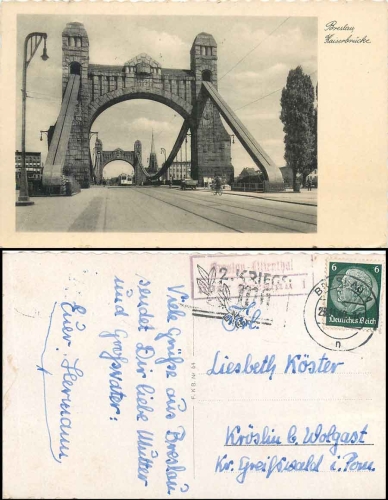 Breslau
Kaiserbrücke
Viele Grüße aus Breslau
sendet Dir liebe Mutter
und Großvater:
Euer Hermann
F.K.B. Nr. 84
2. KRIEGS-
6 6
Deutsches Reich
n
Frl.
Liesbeth Köster
Kröslin b. Wolgast
Kr. Greifswald i. Pom.